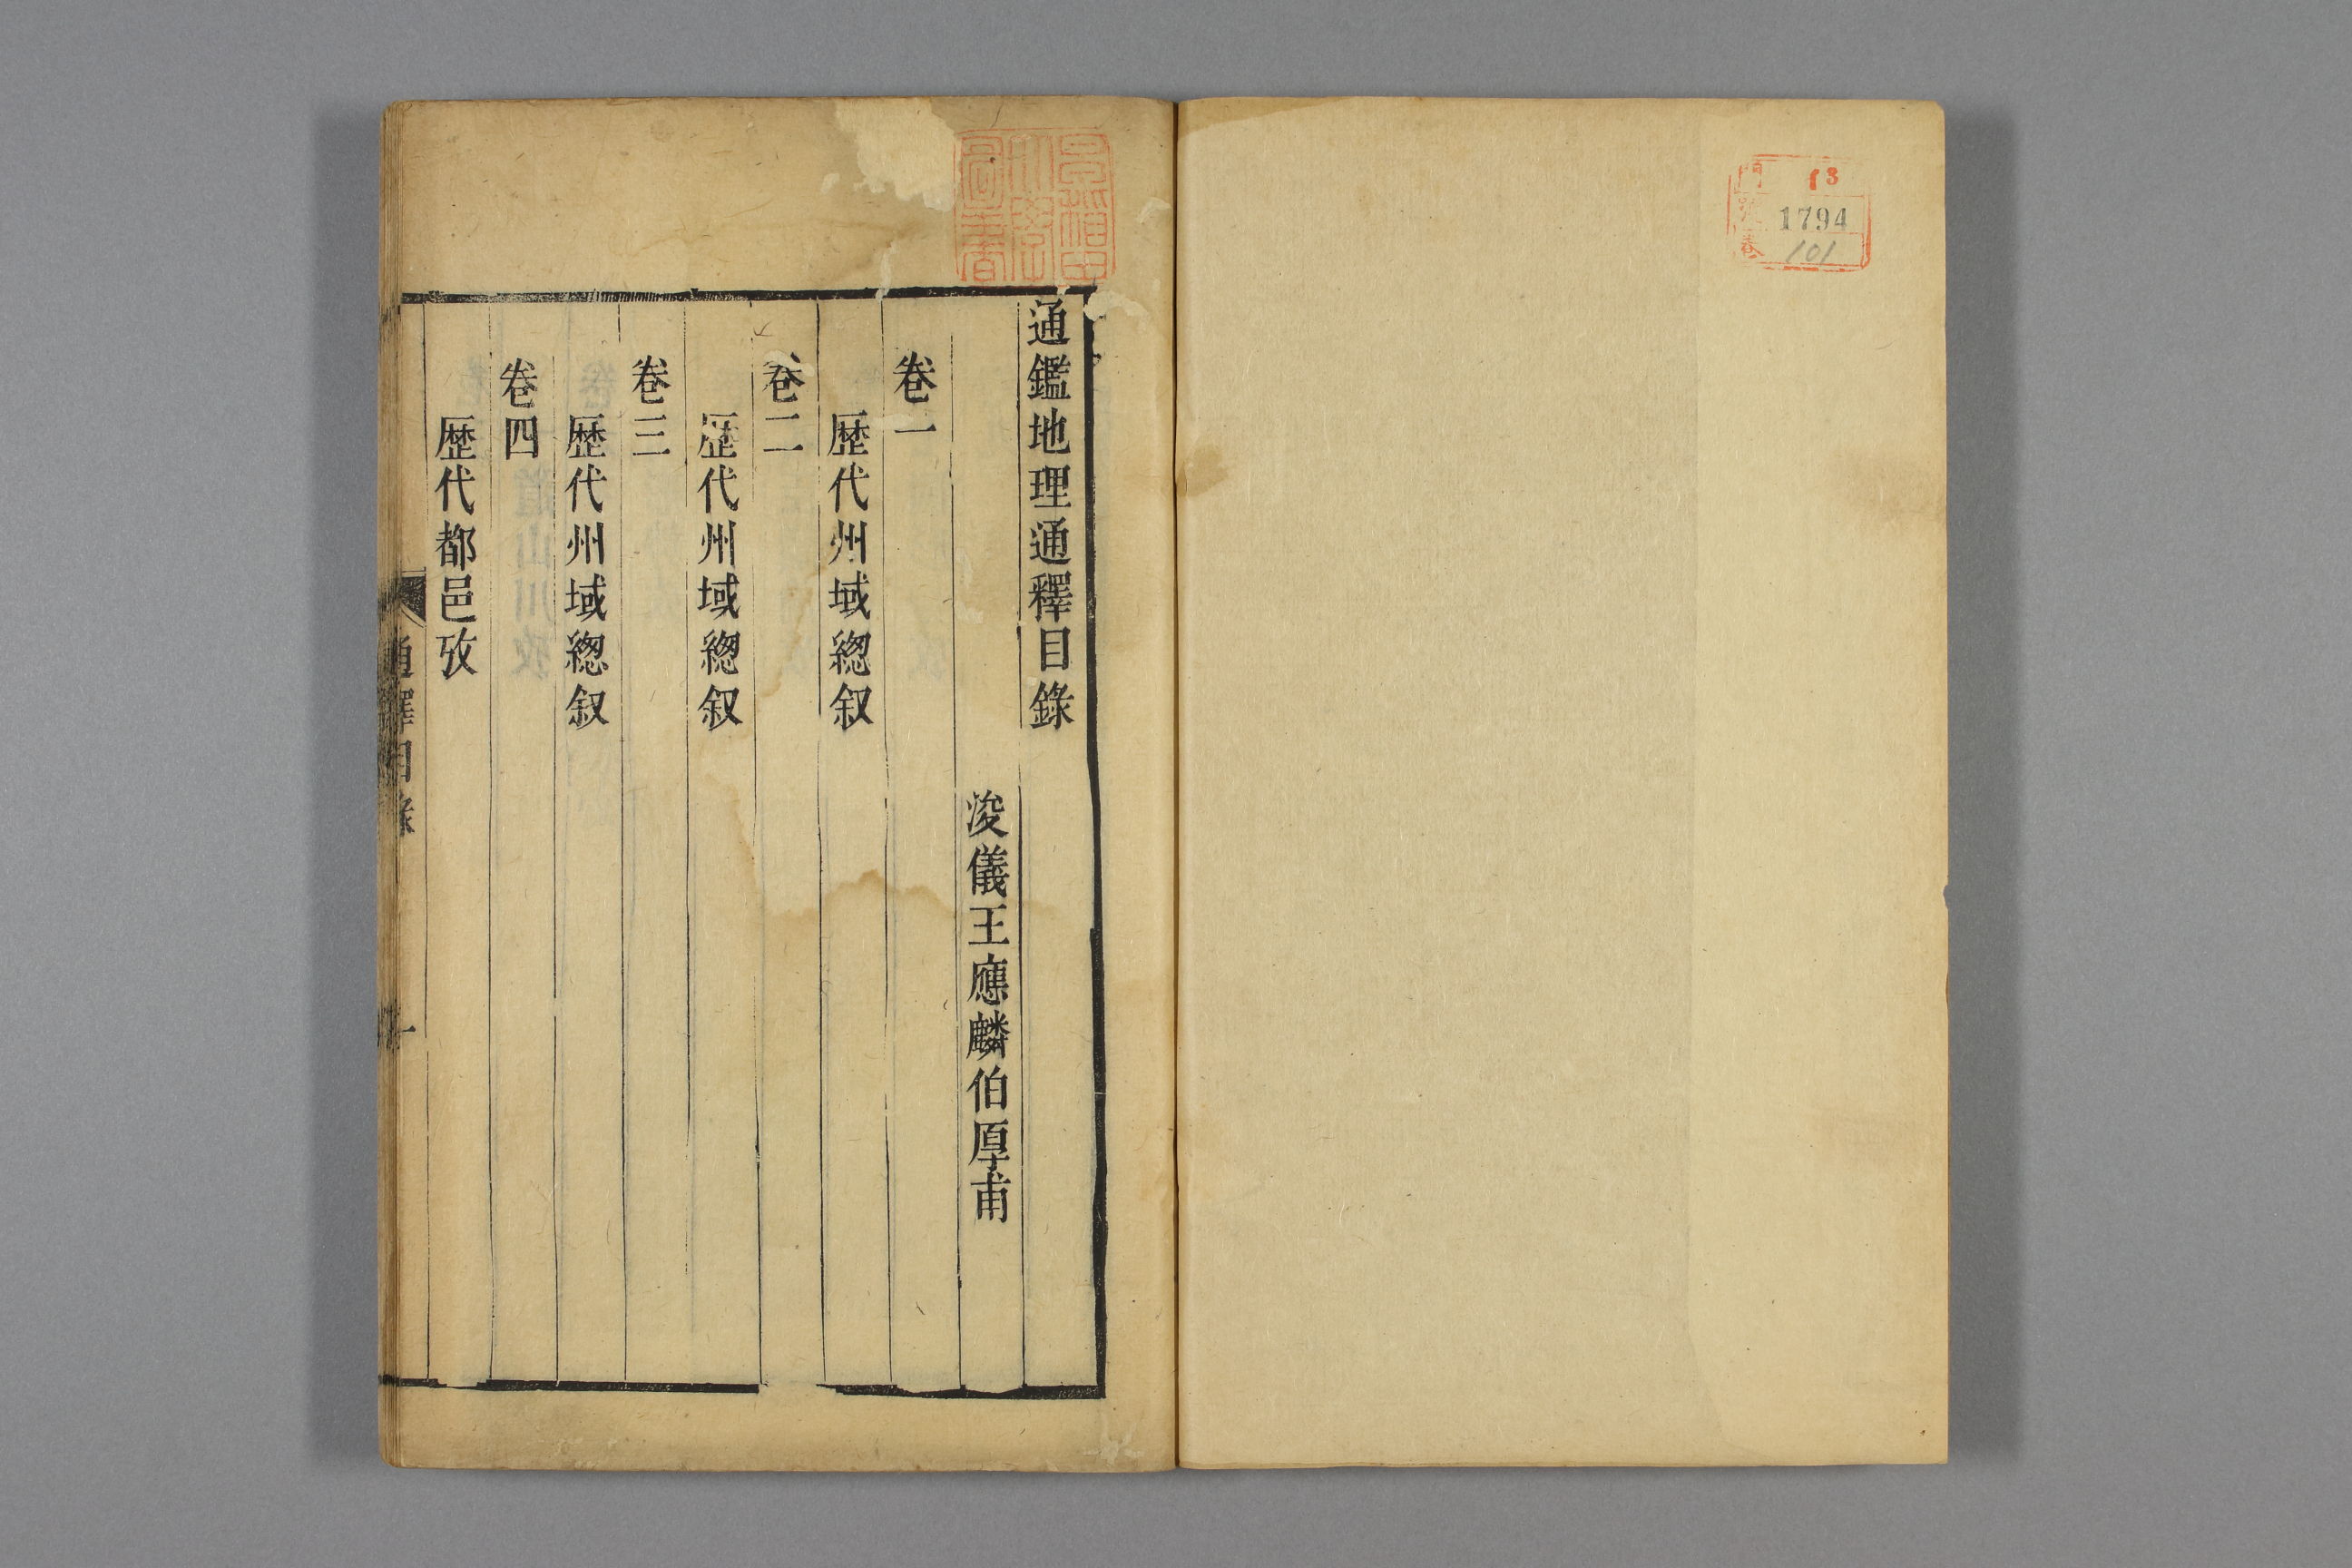 門 13
號 1794
卷 101
早稻田大學圖書
通鑑地理通釋目錄
浚儀王應麟伯厚甫
卷一
歷代州域總叙
卷二
歷代州域總叙
卷三
歷代州域總叙
卷四
歷代都邑攷
通釋目錄
一